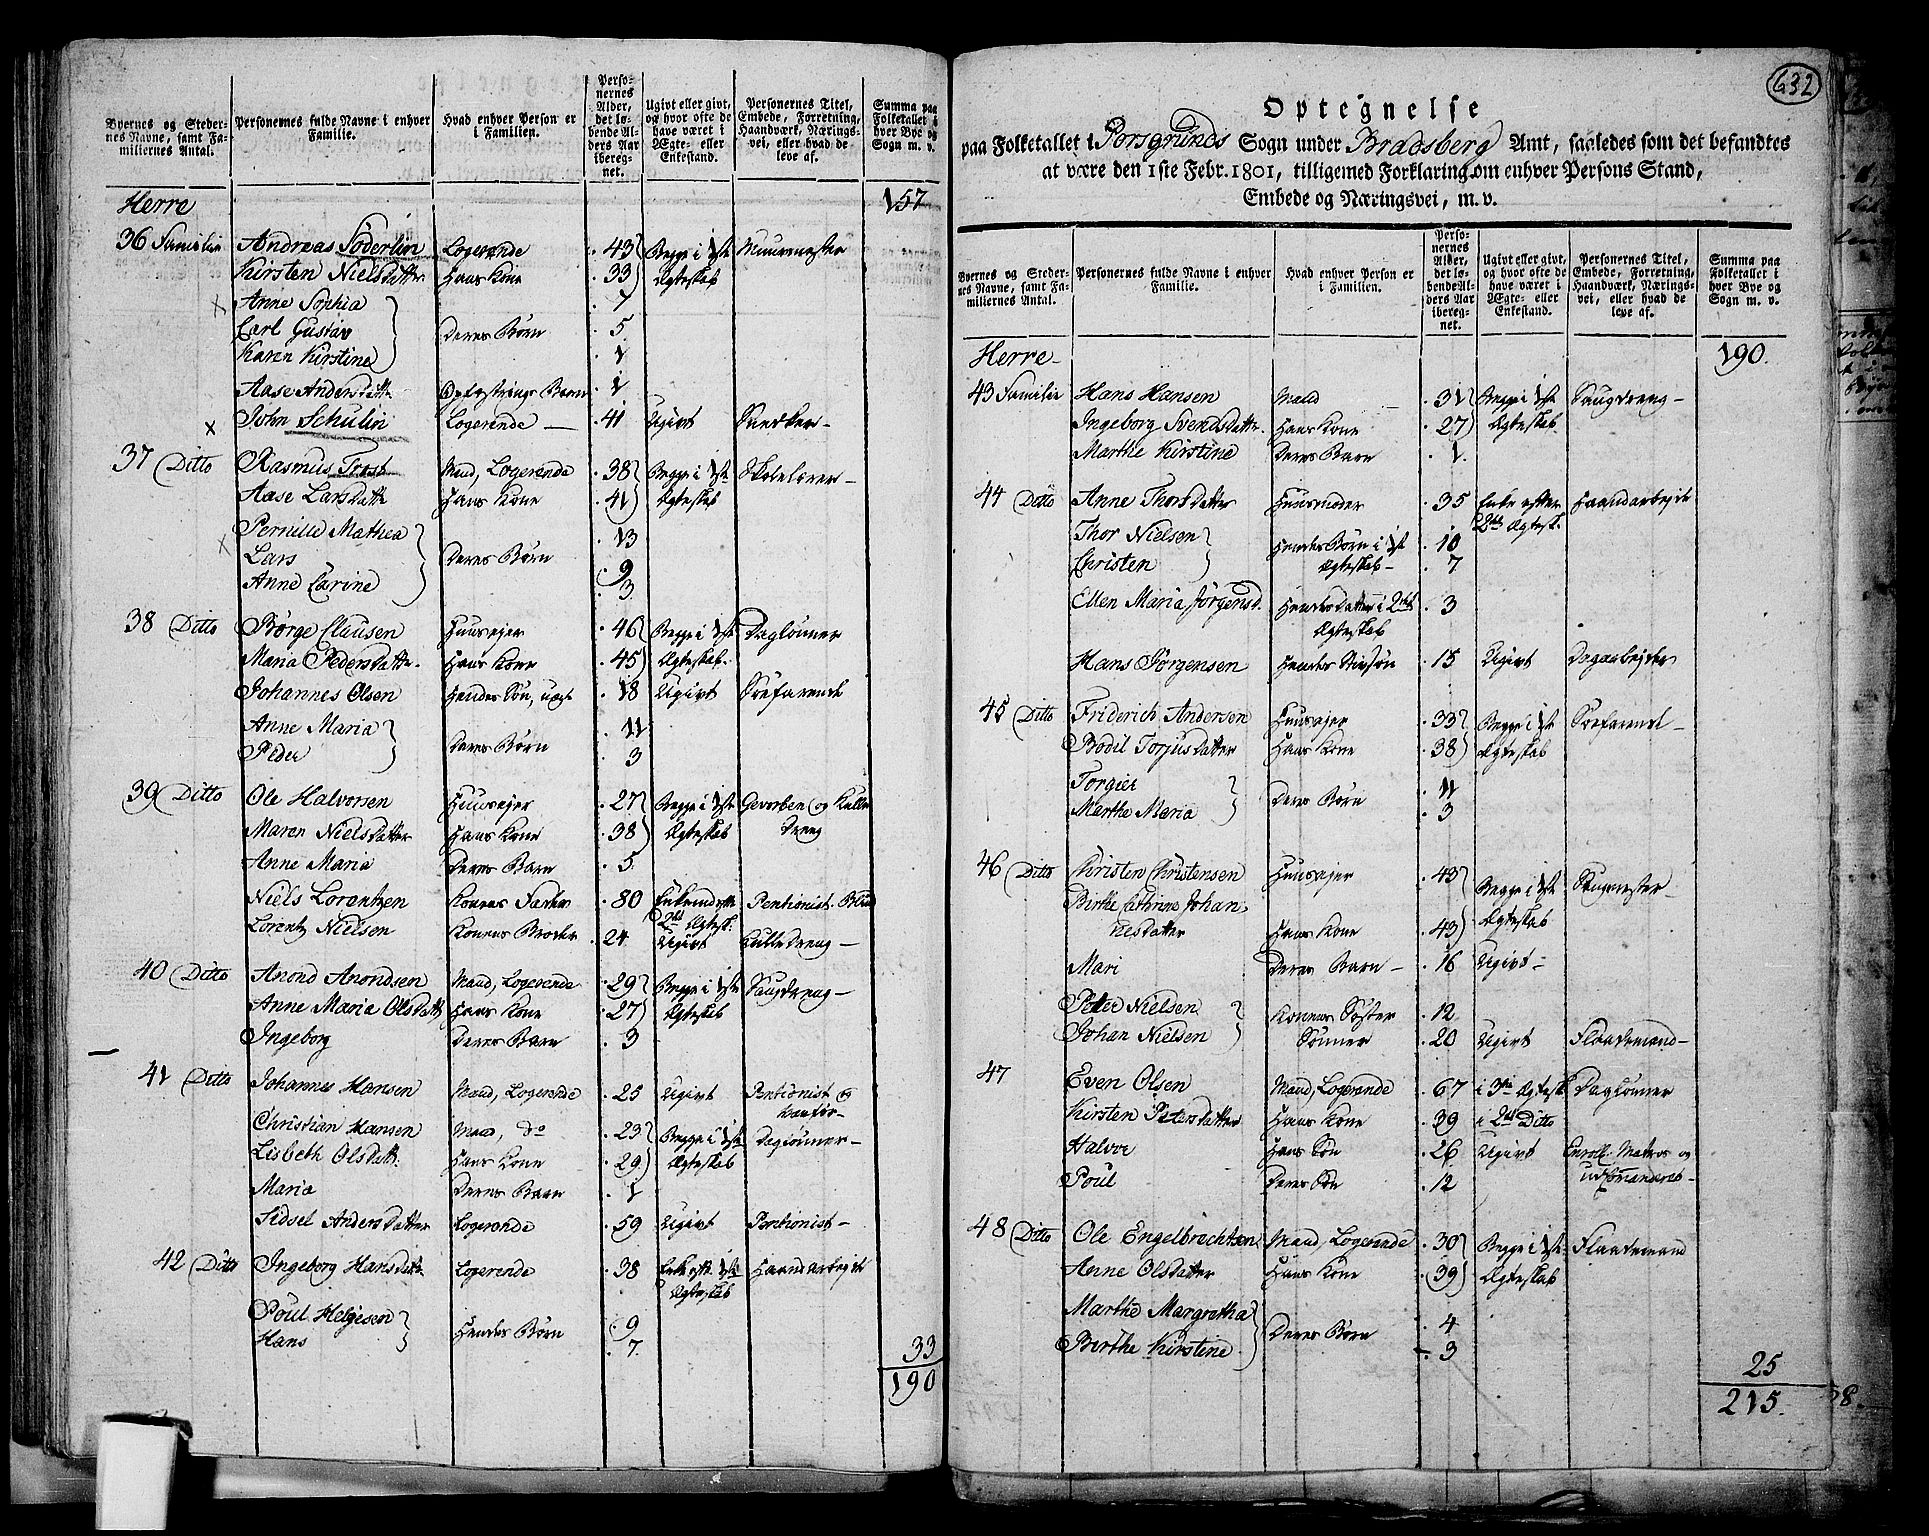 Byernes og Steder-
nes Navne, samt Fa-
miliernes Antal.
Personernes fulde Navne i enhver
Familie.
Hvad enhver Person er
i Familien.
Perso-
nernes
Alder,
det lø-
bende Al-
ders Aar
ibereg-
net.
Ugivt eller givt,
og hvor ofte de
have været i
Ægte- eller
Enkestand.
Personernes Titel,
Embede, Forretning,
Haandværk, Nærings-
vei, eller hvad de
leve af.
Summa paa
Folketallet i
hver Bye og
Sogn m. v.
Herre 157
36 Familie Andreas Söderlin Logerende 43 Begge i 1ste Muurmester
Kirsten Nielsdatter Hans Kone 33 Ægteskab
Anne Sophia 7
Carl Gustav Deres Börn 5
Karen Kirstine 1
Aase Andersdatter Opfostrings Barn 1
John Schulin Logerende 41 Ugivt Snedker
37 Ditto Rasmus Trost Mand, Logerende 38 Begge i 1ste Skolelærer
Aase Larsdatter Hans Kone 41 Ægteskab
Pernille Mathea 13
Lars Deres Börn 9
Anne Carine 3
38 Ditto Börge Clausen Huusejer 46 Begge i 1ste Daglönner
Maria Pedersdatter Hans Kone 45 Ægteskab
Johannes Olsen Hendes Sön, uægt 18 Ugivt Söefarende
Anne Maria 11
Peder Deres Börn 3
39 Ditto Ole Halvorsen Huusejer 27 Begge i 1ste Gevorben og Kulle
Maren Nielsdatter Hans Kone 38 Ægteskab dreng
Anne Maria Deres Barn 5
Niels Lorentzen Konens Fader 80 Enkemand efter Pentionist Blind
2det Ægtesk.
Lorentz Nielsen Konens Broder 24 Ugivt Kulledreng
40 Ditto Anond Anondsen Mand, Logerende 29 Begge i 1ste Saugdreng
Anne Maria Olsdatt Hans Kone 27 Ægteskab
Ingeborg Deres Barn 3
41 Ditto Johannes Hansen Mand, Logerende 25 Ugivt Pentionist og
Christian Hansen Mand, do 23 Begge i 1ste Daglönner
Lisbeth Olsdatt. Hans Kone 29 Ægteskab
Maria Deres Barn 1
Sidsel Andersdatter Logerende 59 Ugivt Pentionist
42 Ditto Ingeborg Hansdatt. Logerende 38 Enke eft. 1ste Haandarbejde
Ægteskab
Poul Helgesen 9
Hans Hendes Börn 7
33
190
632
Optegnelse
paa Folketallet i Porsgrunds Sogn under Bradsberg Amt, saaledes som det befandtes
at være den 1ste Febr. 1801, tilligemed Forklaring om enhver Persons Stand,
Embede og Næringsvei, m. v.
Byernes og Steder-
nes Navne, samt Fa-
miliernes Antal.
Personernes fulde Navne i enhver
Familie.
Hvad enhver Person er
i Familien.
Perso-
nernes
Alder,
det lø-
bende Al-
ders Aar
ibereg-
net.
Ugivt eller givt,
og hvor ofte de
have været i
Ægte- eller
Enkestand.
Personernes Titel,
Embede, Forretning,
Haandværk, Nærings-
vei, eller hvad de
leve af.
Summa paa
Folketallet i
hver Bye og
Sogn m. v.
Herre 190.
43 Familie Hans Hansen Mand 31 Begge i 1ste Saugdreng
Ingeborg Svendsdatter Hans Kone 27 Ægteskab
Marthe Kirstine Deres Barn 1
44 Ditto Anne Thorsdatter Huusmoder 35 Enke efter Haandarbejde
2det Ægtesk.
Thor Nielsen Hendes Börn i 1st 10
Christen Ægteskab 7
Ellen Maria Jörgensd. Hendes datter i 2det 3
Ægteskab
Hans Jörgensen Hendes Stifsön 15 Ugivt Dagarbejder
45 Ditto Friderich Andersen Huusejer 33 Begge i 1ste Söefarende
Bodil Torjusdatter Hans Kone 38 Ægteskab
Torgier 11
Marthe Maria Deres Börn 3
46 Ditto Christen Christensen Huusejer 43 Begge i 1ste Saugmester
Birthe Cathrine Johan-
nesdatter Hans Kone 43 Ægteskab
Mari Deres Barn 16 Ugivt
Peter Nielsen Konens Söster 12
Johan Nielsen Sönner 20 Ugivt Flaademand
47 Even Olsen Mand, Logerende 67 i 3die Ægtesk Daglönner
Kirsten Petersdatter Hans Kone 39 i 2det Ditto
Halvor Hans Sön 26 Ugivt Enroll. Matros og
udcommanderet
Poul Deres Sön 12
48 Ditto Ole Engelbrechtsen Mand, Logerende 30 Begge i 1ste Flaademand
Anne Olsdatter Hans Kone 39 Ægteskab
Marthe Margretha 4
Birthe Kirstine Deres Börn 3
25
215.